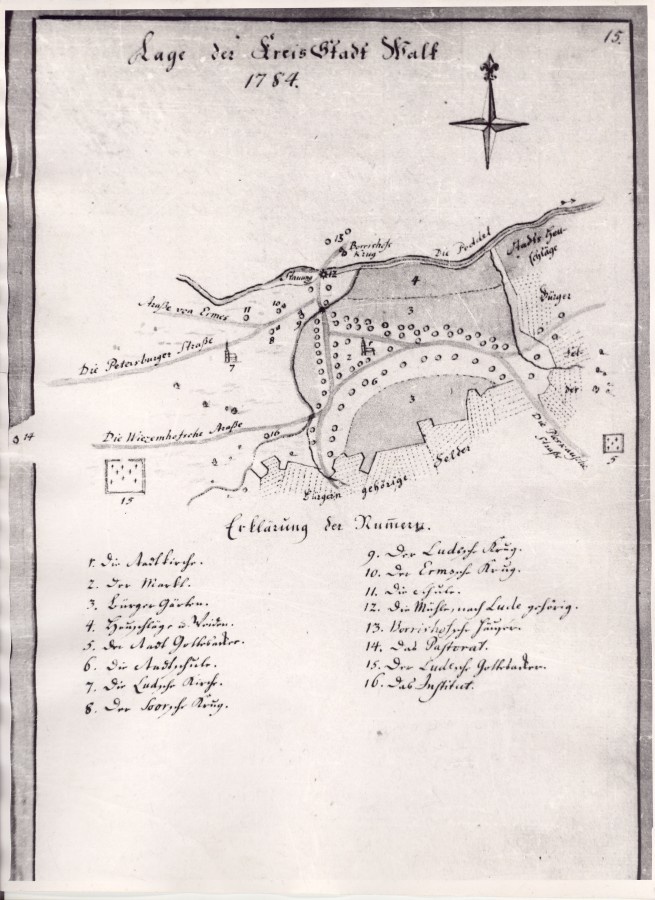 15.
Lage der Kreis Stadt Walk
1784.
13
Borrishofs
Krug
Die Peddel
Stadts Heu-
schläge
Stauung
12
4
Straße von Ermes
11
10
9
8
3
Bürger
Die Petersburger Straße
7
2
1
6
Fel-
der
3
14
Die Wiezemhofsche Straße
16
Die
Straße
5
15
Bürgern gehörige Felder
Erklärung der Numern.
1. Die Stadtkirche.
2. Der Markt.
3. Bürger Gärten.
4. Heuschläge u. Weiden.
5. Der Stadt Gottesacker.
6. Die Stadtschule.
7. Die Ludsche Kirche.
8. Der Soorsche Krug.
9. Der Ludsche Krug.
10. Der Ermsche Krug.
11. Die Schule.
12. Die Mühle, nach Lude gehörig.
13. Borrishofsche Häuser.
14. Das Pastorat.
15. Der Ludsche Gottesacker.
16. Das Institut.